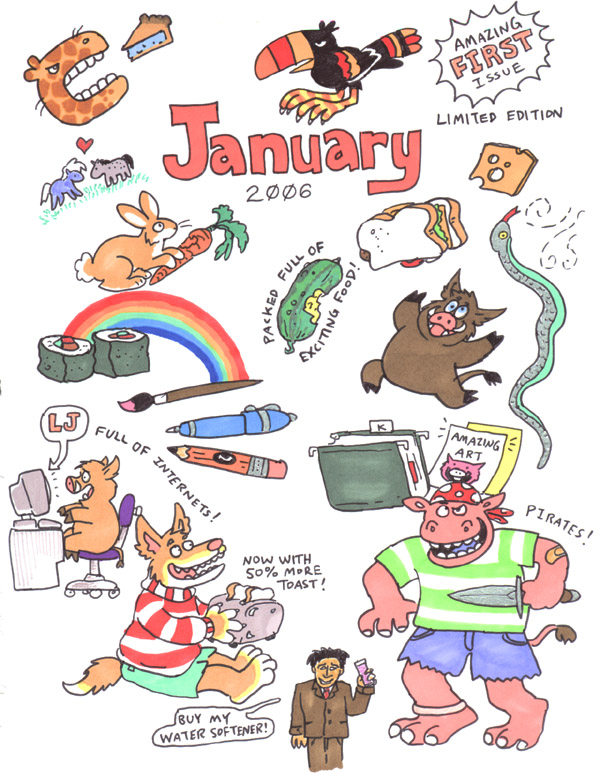 AMAZING
FIRST
ISSUE
LIMITED EDITION
January
2006
PACKED FULL OF
EXCITING FOOD!
LJ
FULL OF INTERNETS!
K
AMAZING
ART
PIRATES!
NOW WITH
50% MORE
TOAST!
BUY MY
WATER SOFTENER!